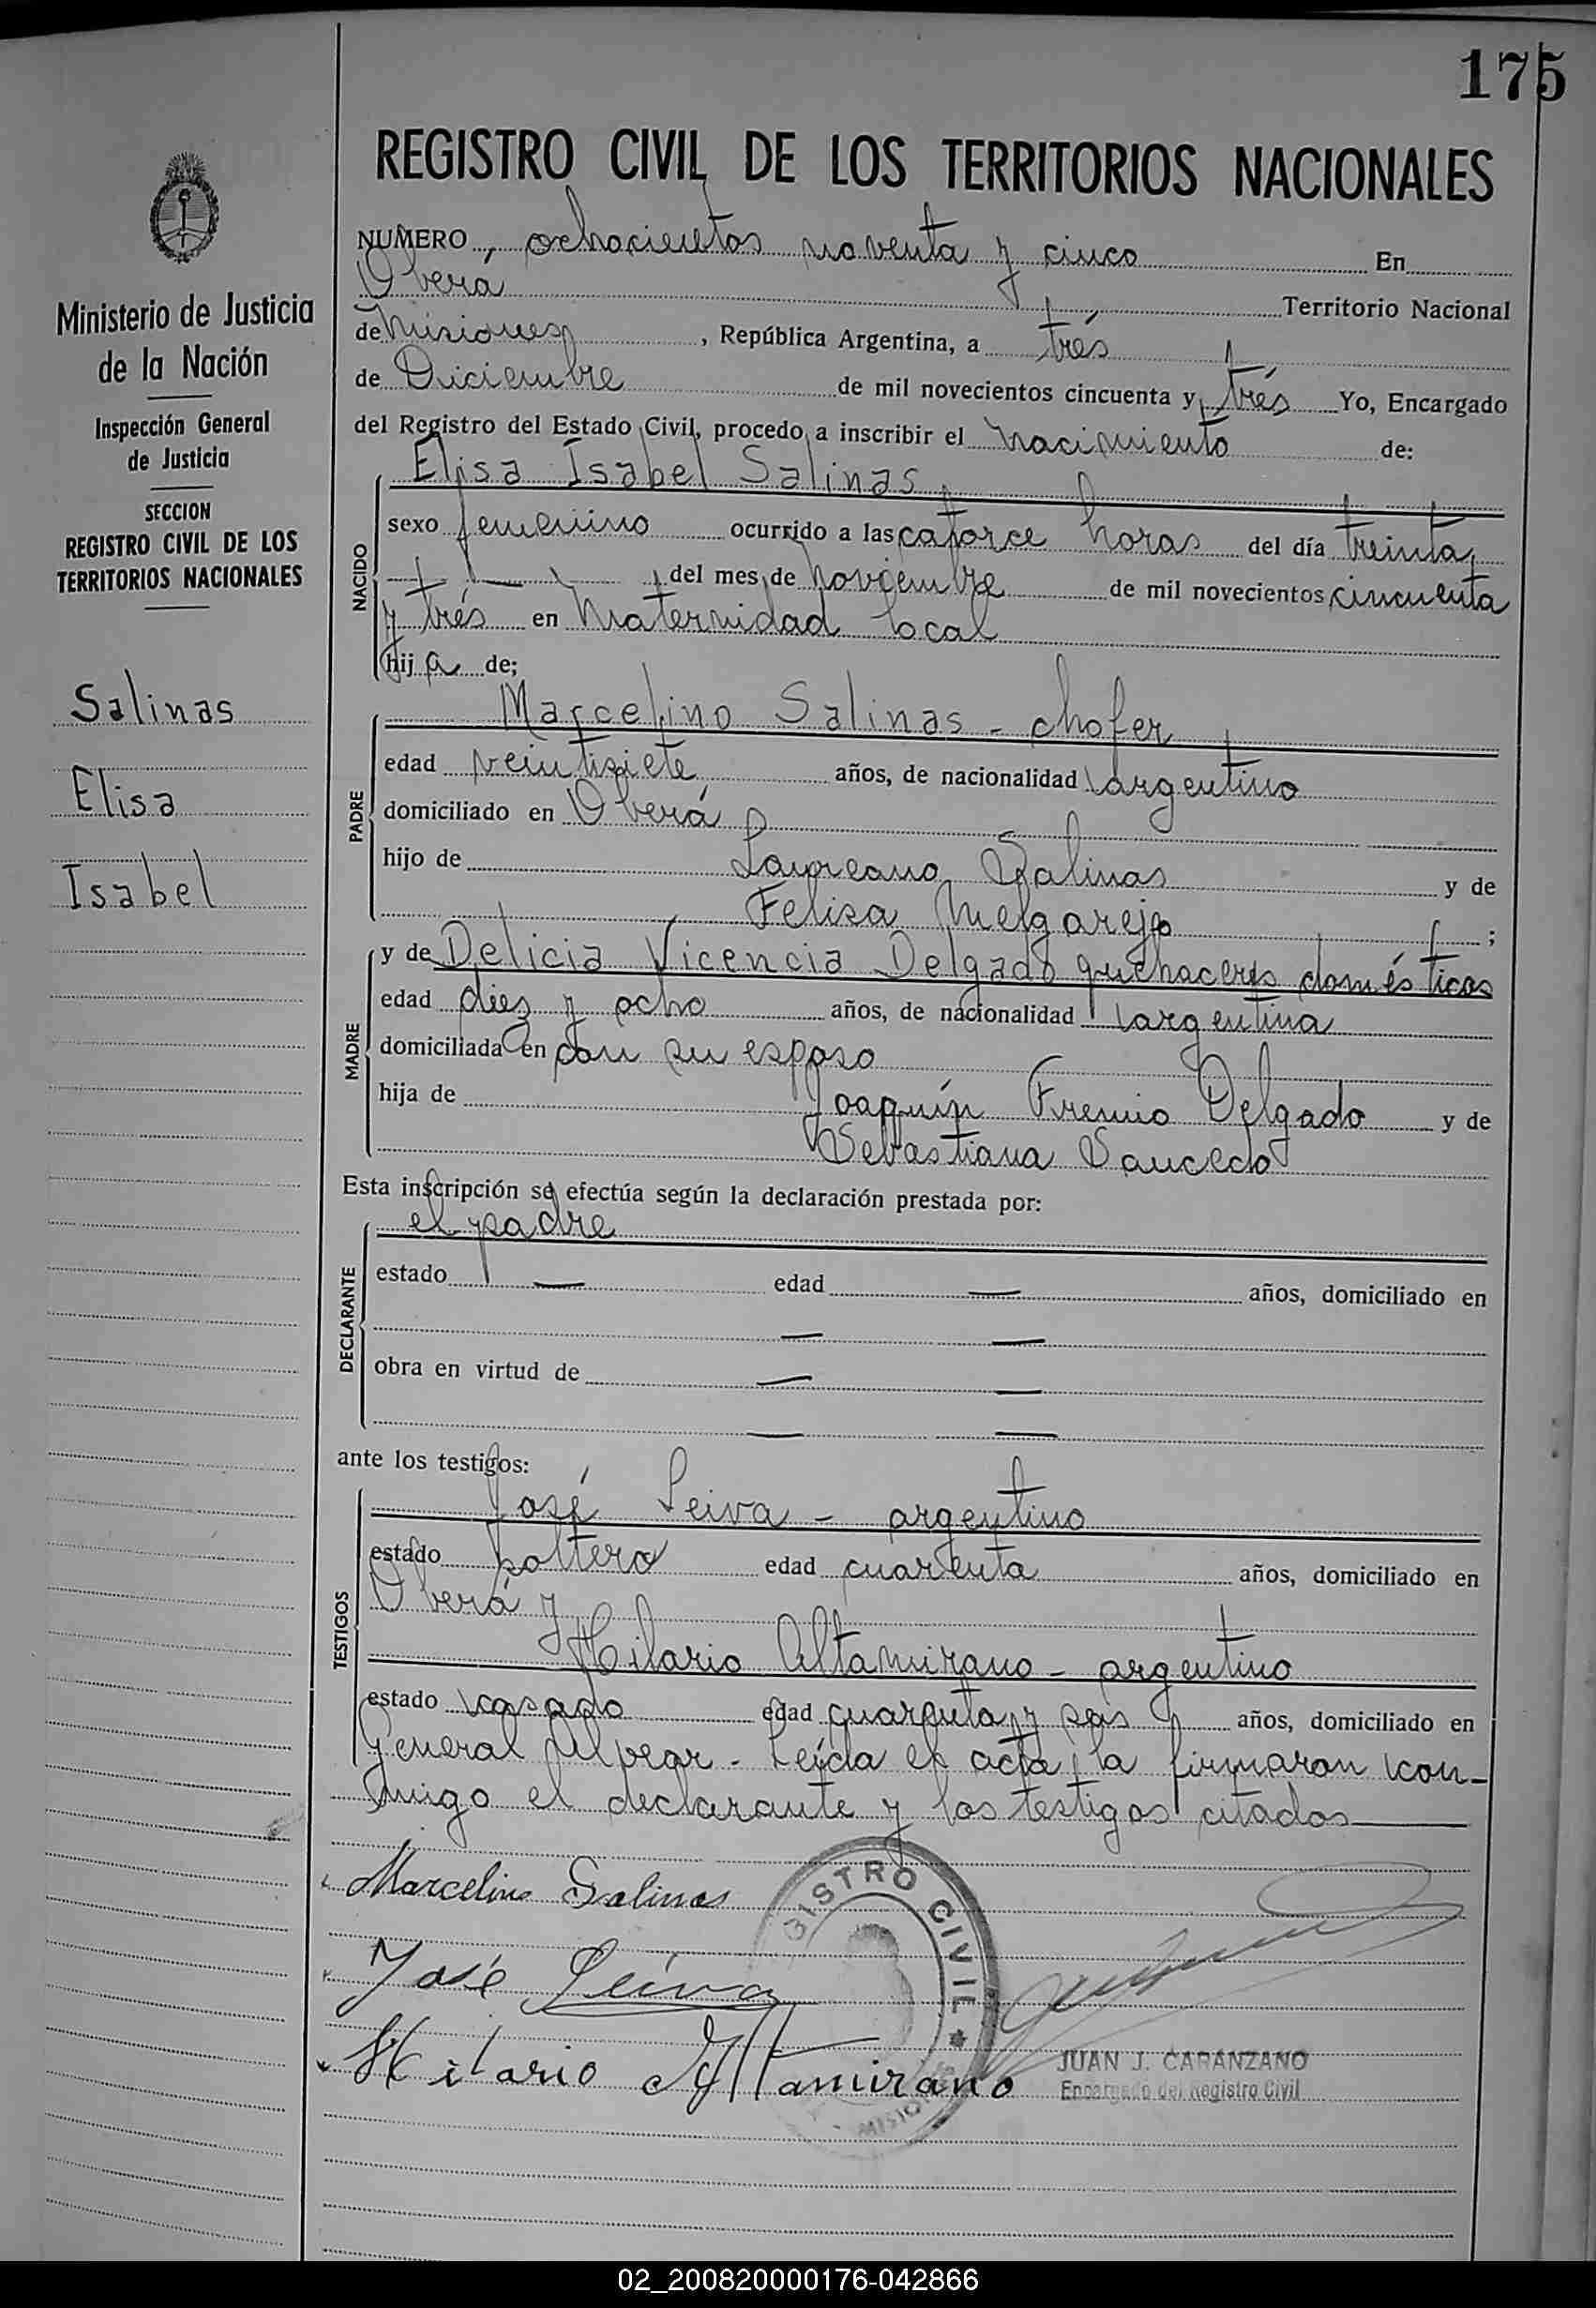 175
REGISTRO CIVIL DE LOS TERRITORIOS NACIONALES
Ministerio de Justicia
de la Nación
Inspección General
de Justicia
SECCION
REGISTRO CIVIL DE LOS
TERRITORIOS NACIONALES
Salinas
Elisa
Isabel
NUMERO, ochocientos noventa y cinco En
Oberá Territorio Nacional
de Misiones, República Argentina, a trés
de Diciembre de mil novecientos cincuenta y trés Yo, Encargado
del Registro del Estado Civil, procedo a inscribir el nacimiento de:
Elisa Isabel Salinas
NACIDO
sexo femenino ocurrido a las catorce horas del día treinta
del mes de noviembre de mil novecientos cincuenta
y trés en Maternidad local
hija de;
Marcelino Salinas - chofer
PADRE
edad veintisiete años, de nacionalidad argentino
domiciliado en Oberá
hijo de Laureano Salinas y de
Felisa Melgarejo ;
y de Delicia Vicencia Delgado quehaceres domésticos
MADRE
edad diez y ocho años, de nacionalidad argentina
domiciliada en con su esposo
hija de Joaquín Fremio Delgado y de
Sebastiana Saucedo
Esta inscripción se efectúa según la declaración prestada por:
el padre
DECLARANTE
estado — edad — años, domiciliado en
— —
obra en virtud de — —
— —
ante los testigos:
José Leiva - argentino
TESTIGOS
estado soltero edad cuarenta años, domiciliado en
Oberá y
Hilario Altamirano - argentino
estado casado edad cuarenta y seis años, domiciliado en
General Alvear - Leída el acta, la firmaron con-
migo el declarante y los testigos citados
Marcelino Salinas
José Leiva
Hilario Altamirano
GISTRO CIVIL
MISIONES
JUAN J. CARANZANO
Encargado del Registro Civil
02_200820000176-042866